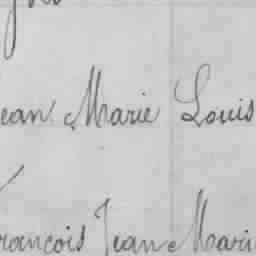 ean Marie Louis
rancois Jean Mari